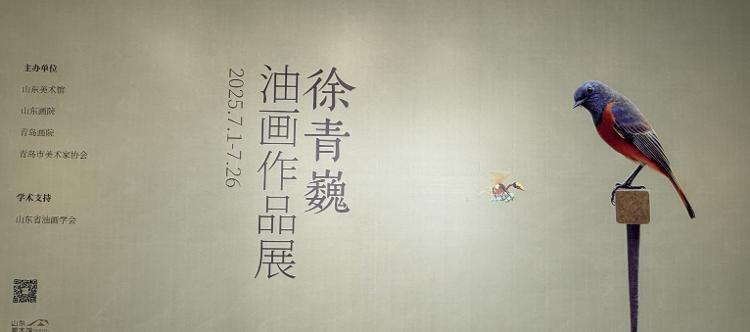 主办单位
山东美术馆
山东画院
青岛画院
青岛市美术家协会
学术支持
山东省油画学会
徐青巍
油画作品展
2025.7.1-7.26
山东
美术馆